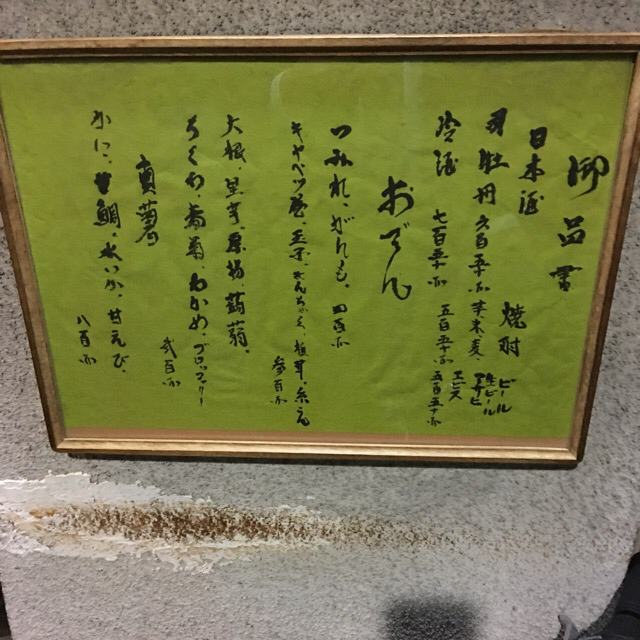 御品書
日本酒
司牡丹 六百五十
冷酒 七百五十
焼酎
芋 米 麦
五百五十
ビール
生ビール
アサヒ
エビス
五百五十
おでん
つみれ、がんも、四百
キャベツ巻、玉子、きんちゃく、
参百
大根、里芋、厚揚、蒟蒻、
ちくわ、春菊、わかめ、ブロッコリー
弐百
真薯
かに、鯛、水いか、甘えび、
八百